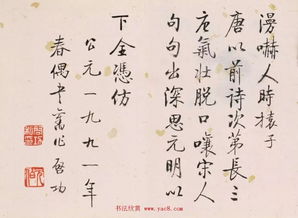 漫嚇人時猿子
唐以前詩次第長三
唐氣壯脱口嚷宋人
句句出深思元明以
下全憑仿
公元一九九一年
春偶书舊作啓功
书法欣赏 www.yac8.com